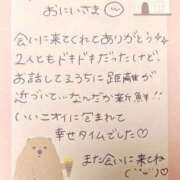 おにいさま
会いに来てくれてありがとう
2人ともドキドキだったけど、
お話してるうちに距離が
近づいて〜なんだか新鮮!!
いいニオイに包まれて
幸せタイムでした♡
また会いに来てね